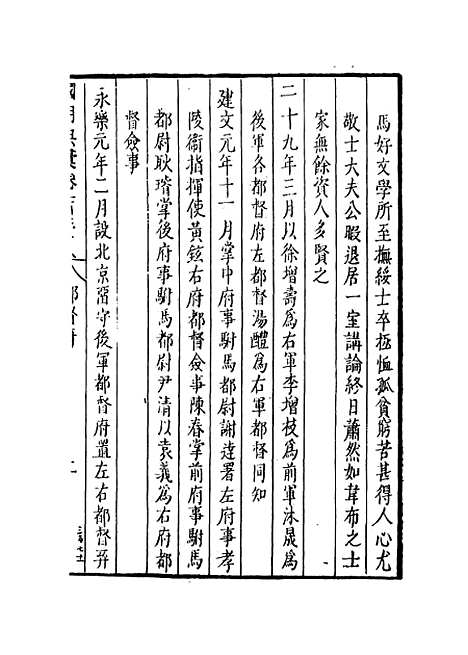 馬好文學所至撫綏士卒極恤孤貧窮苦甚得人心尤
敬士大夫公暇退居一室講論終日蕭然如韋布之士
家無餘資人多賢之
二十九年三月以徐增壽為右軍李增枝為前軍沐晟為
後軍各都督府左都督湯醴為右軍都督同知
建文元年十一月掌中府事駙馬都尉謝達署左府事孝
陵衞指揮使黃鉉右府都督僉事陳春掌前府事駙馬
都尉耿璿掌後府事駙馬都尉尹清以袁義為右府都
督僉事
永樂元年二月設北京留守後軍都督府置左右都督并
國朝典彙卷 都督府